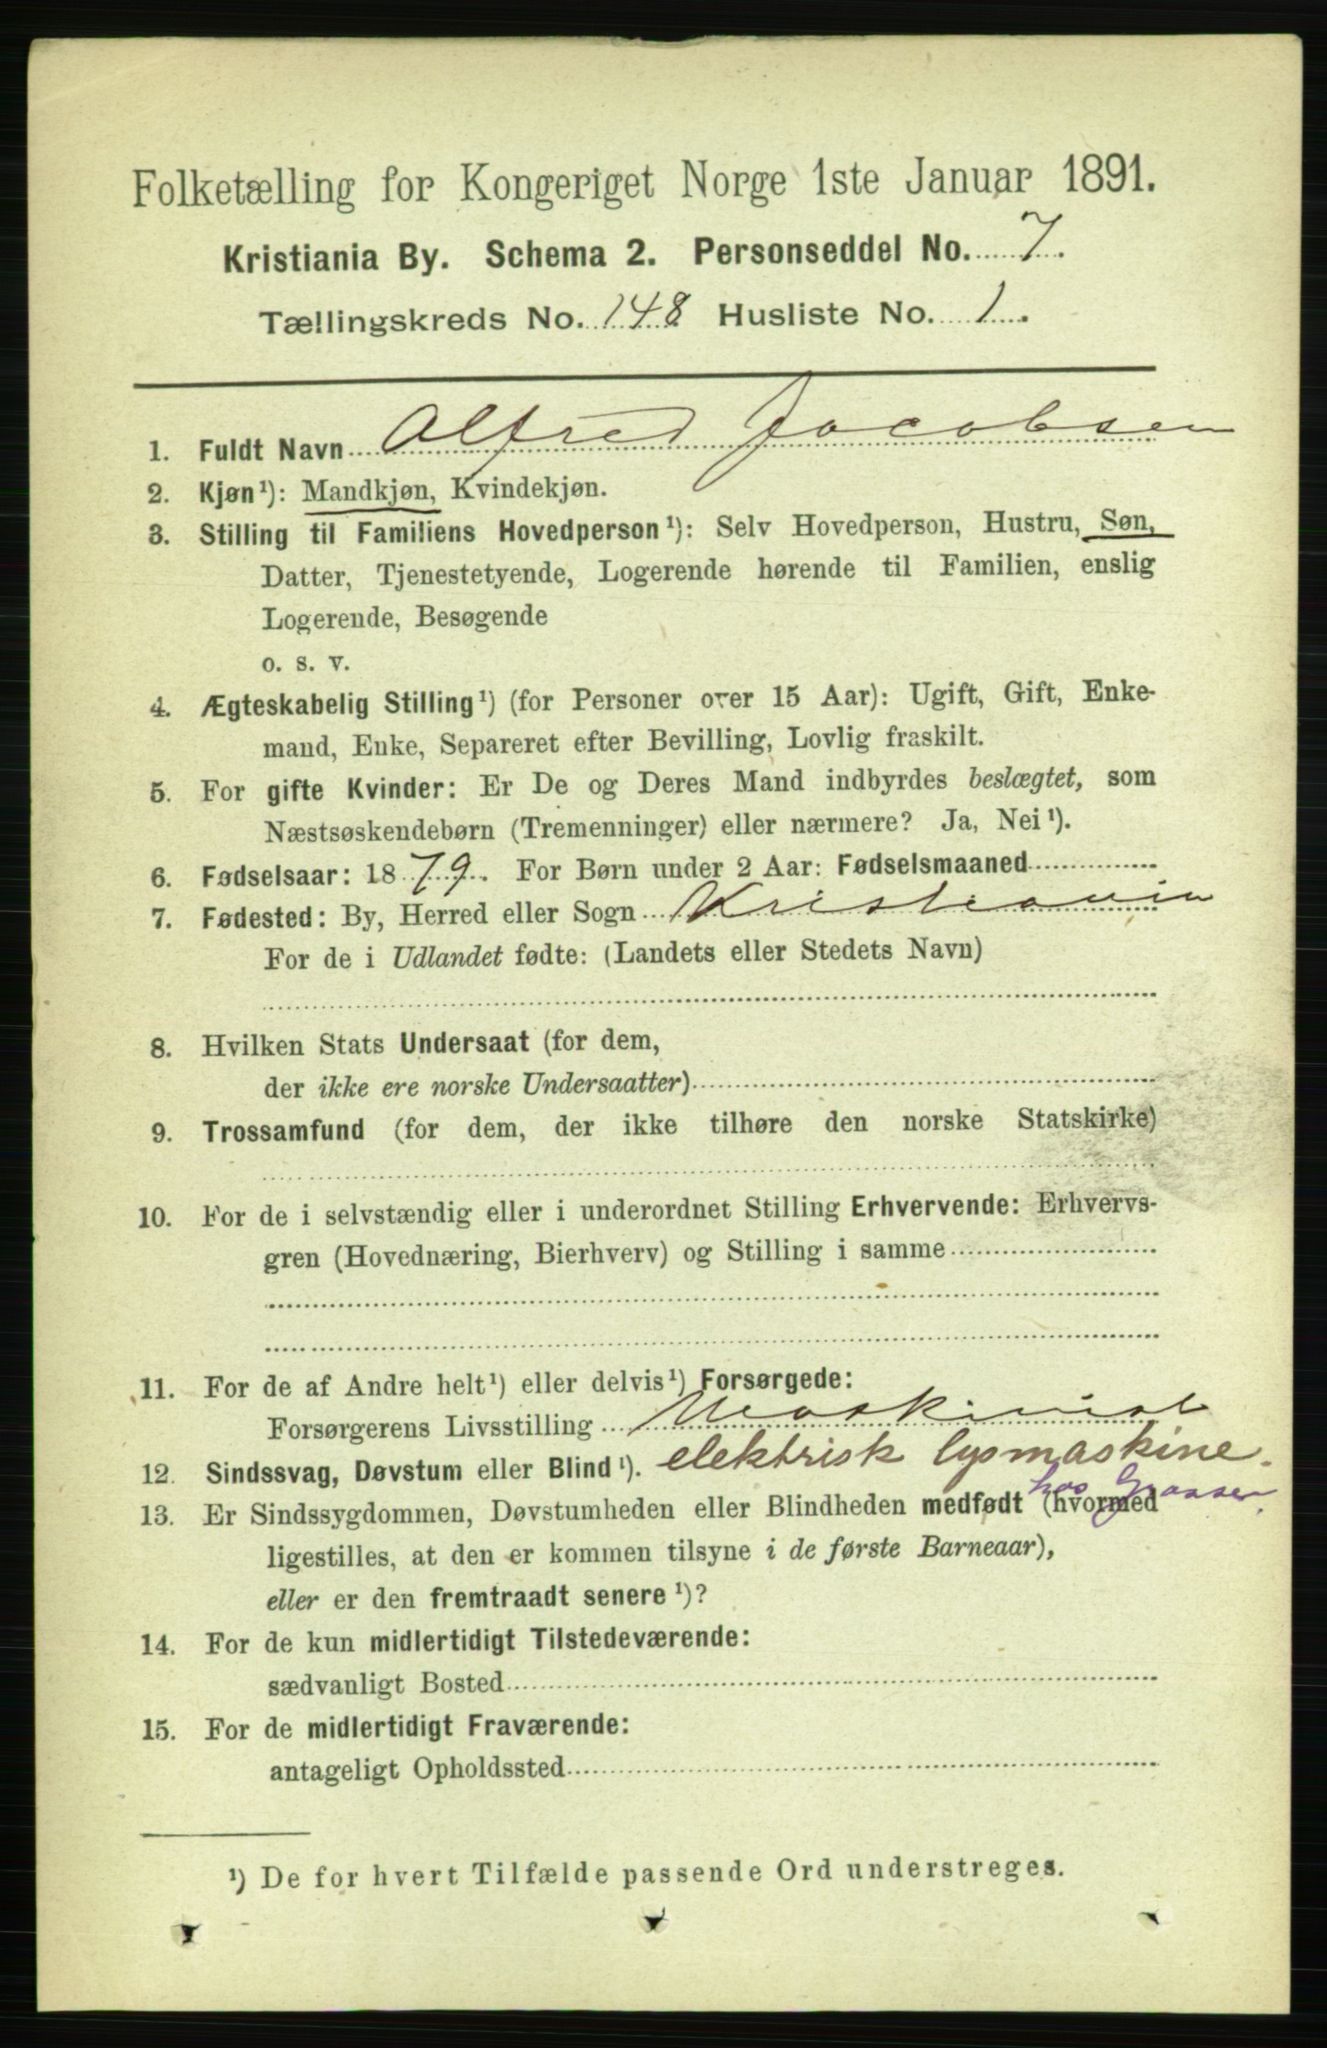 Folketælling for Kongeriget Norge 1ste Januar 1891.
Kristiania By. Schema 2. Personseddel No. 7.
Tællingskreds No. 148 Husliste No. 1.
1. Fuldt Navn Alfred Jacobsen
2. Kjøn¹): Mandkjøn, Kvindekjøn.
3. Stilling til Familiens Hovedperson¹): Selv Hovedperson, Hustru, Søn,
Datter, Tjenestetyende, Logerende hørende til Familien, enslig
Logerende, Besøgende
o. s. v.
4. Ægteskabelig Stilling¹) (for Personer over 15 Aar): Ugift, Gift, Enke-
mand, Enke, Separeret efter Bevilling, Lovlig fraskilt.
5. For gifte Kvinder: Er De og Deres Mand indbyrdes beslægtet, som
Næstsøskendebørn (Tremenninger) eller nærmere? Ja, Nei¹).
6. Fødselsaar: 1879. For Børn under 2 Aar: Fødselsmaaned
7. Fødested: By, Herred eller Sogn Kristiania
For de i Udlandet fødte: (Landets eller Stedets Navn)
8. Hvilken Stats Undersaat (for dem,
der ikke ere norske Undersaatter)
9. Trossamfund (for dem, der ikke tilhøre den norske Statskirke)
10. For de i selvstændig eller i underordnet Stilling Erhvervende: Erhvervs-
gren (Hovednæring, Bierhverv) og Stilling i samme
11. For de af Andre helt¹) eller delvis¹) Forsørgede:
Forsørgerens Livsstilling Maskinist
12. Sindssvag, Døvstum eller Blind¹). elektrisk lysmaskine.
hos
13. Er Sindssygdommen, Døvstumheden eller Blindheden medfødt (hvormed
ligestilles, at den er kommen tilsyne i de første Barneaar),
eller er den fremtraadt senere¹)?
14. For de kun midlertidigt Tilstedeværende:
sædvanligt Bosted
15. For de midlertidigt Fraværende:
antageligt Opholdssted
¹) De for hvert Tilfælde passende Ord understreges.